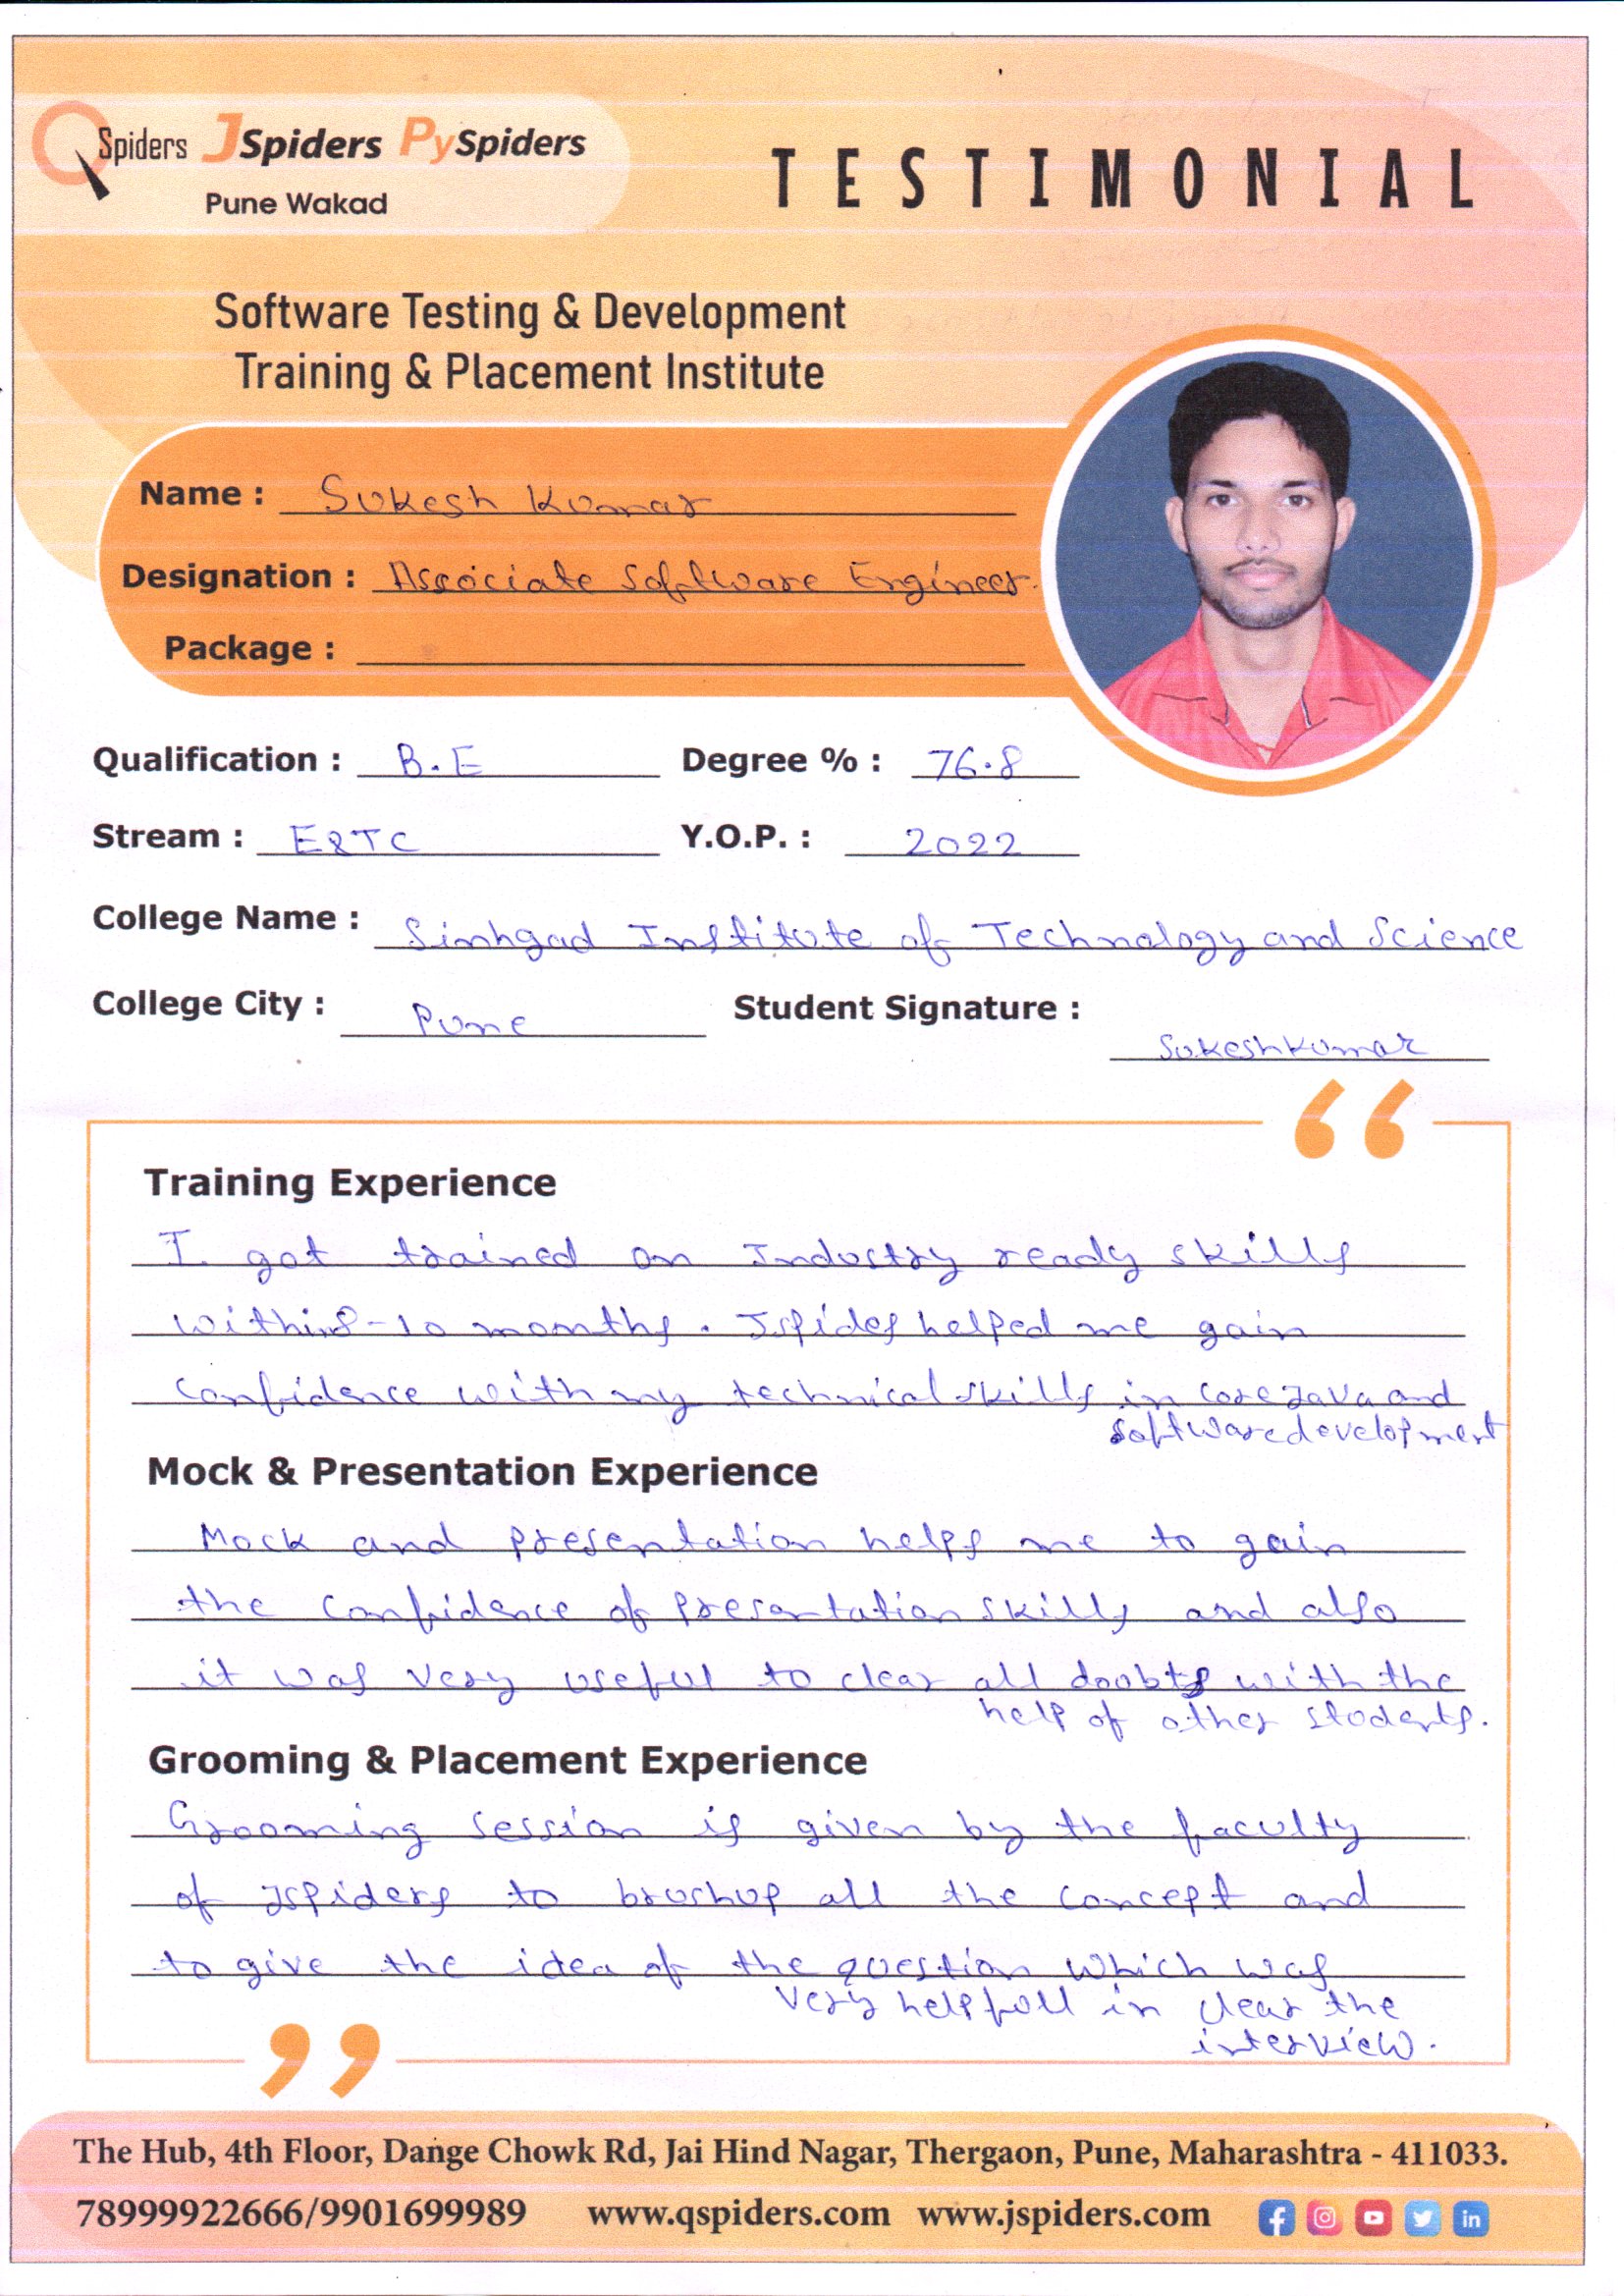 QSpiders JSpiders PySpiders
Pune Wakad
TESTIMONIAL
Software Testing & Development
Training & Placement Institute
Name : Sukesh Kumar
Designation : Associate Software Engineer.
Package :
Qualification : B.E Degree % : 76.8
Stream : E&TC Y.O.P. : 2022
College Name : Sinhgad Institute of Technology and Science
College City : Pune Student Signature : Sukeshkumar
“
Training Experience
I got trained on Industry ready skills
within 8-10 months. Jspides helped me gain
confidence with my technical skills in core java and
software development
Mock & Presentation Experience
Mock and presentation helps me to gain
the confidence of presentation skills and also
it was very useful to clear all doubts with the
help of other students.
Grooming & Placement Experience
Grooming session is given by the faculty
of Jspiders to brushup all the concept and
to give the idea of the question which was
very helpfull in clear the
interview.
”
The Hub, 4th Floor, Dange Chowk Rd, Jai Hind Nagar, Thergaon, Pune, Maharashtra - 411033.
78999922666/9901699989 www.qspiders.com www.jspiders.com